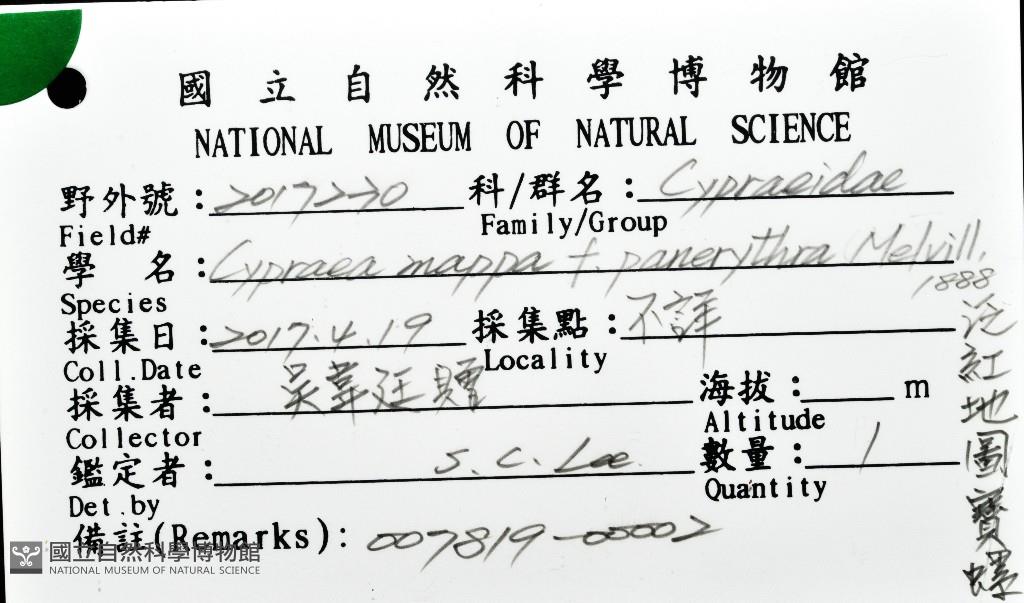 國立自然科學博物館
NATIONAL MUSEUM OF NATURAL SCIENCE
野外號:2017270 科/群名:Cypraeidae
Field# Family/Group
學名:Cypraea mappa f. panerythra Melvill, 1888
Species
採集日:2017.4.19 採集點:不詳
Coll.Date Locality
採集者:吳葦廷贈 海拔: m
Collector Altitude
鑑定者:S. C. Lee 數量:1
Det.by Quantity
備註(Remarks):007819-00002
泛紅地圖寶螺
國立自然科學博物館
NATIONAL MUSEUM OF NATURAL SCIENCE